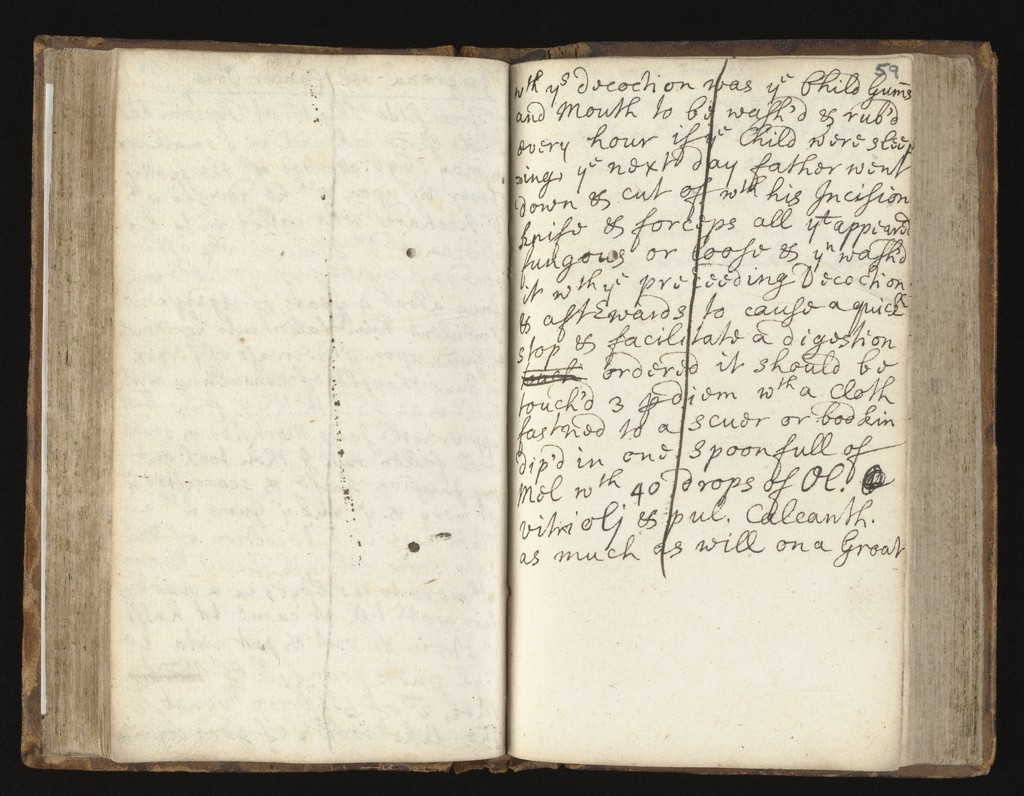 59
wth ys decoction was ye Child Gums
and Mouth to be wash'd & rub'd
every hour if ye Child were sleep
ing, ye next day father went
down & cut of wth his Incision
knife & forceps all yt appeared
fungous or loose & yn wash'd
it wth ye preceeding Decoction
& afterwards to cause a quick
stop & facilitate a digestion
ordered it should be
touch'd 3 p diem wth a cloth
fastned to a scuer or bodkin
dip'd in one spoonfull of
Mel wth 40 drops of Ol.
vitrioli & pul. Calcanth.
as much as will on a Groat